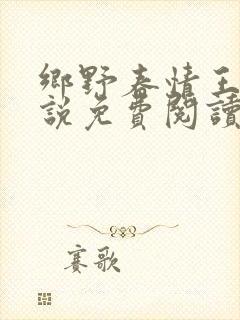 鄉野春情王
說免費閱讀
賽歌